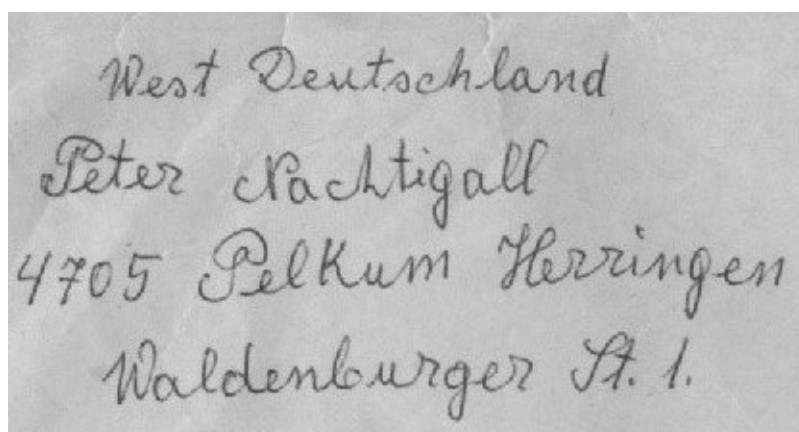 West Deutschland
Peter Nachtigall
4705 Pelkum Herringen
Waldenburger St. 1.